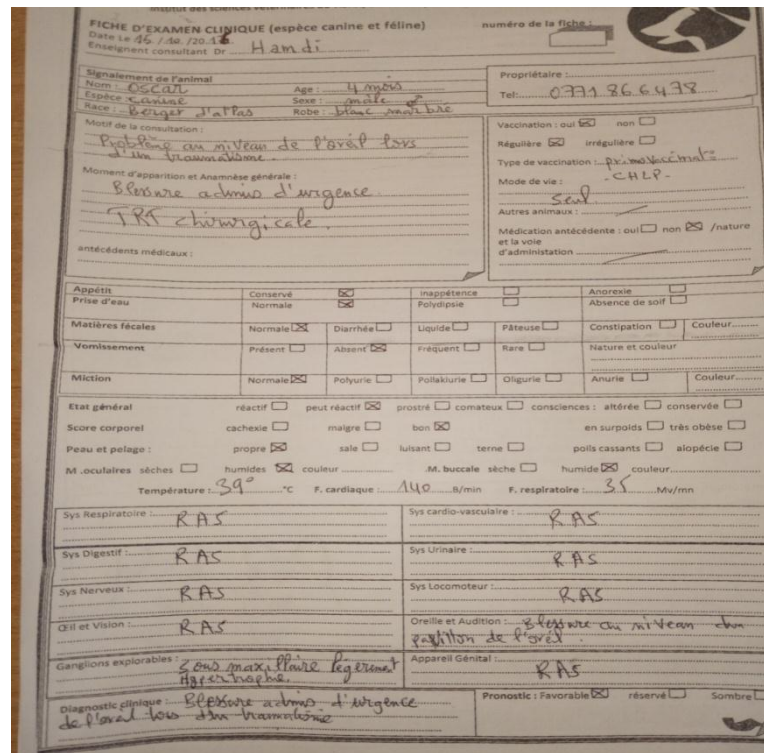 Institut des sciences vétérinaires
FICHE D'EXAMEN CLINIQUE (espèce canine et féline)
numéro de la fiche :
Date Le 16 /10 /20.1
Enseignent consultant Dr Hamdi
Signalement de l'animal
Nom : OSCAR Age : 4 mois
Espèce : canine Sexe : male ♂
Race : Berger d'atlas Robe : blanc marbre
Propriétaire :
Tel: 0771 86 64 78
Motif de la consultation :
Problème au niveau de l'orél lors
d'un traumatisme.
Moment d'apparition et Anamnèse générale :
Blessure admis d'urgence
TRT chirurgicale.
antécédents médicaux :
Vaccination : oui ☒ non ☐
Régulière ☒ irrégulière ☐
Type de vaccination : primovaccinat
- CHLP -
Mode de vie :
Seul
Autres animaux :
Médication antécédente : oui ☐ non ☒ /nature
et la voie
d'administation
Appétit Conservé ☒ Inappétence ☐ Anorexie ☐
Prise d'eau Normale ☒ Polydipsie ☐ Absence de soif ☐
Matières fécales Normale ☒ Diarrhée ☐ Liquide ☐ Pâteuse ☐ Constipation ☐ Couleur
Vomissement Présent ☐ Absent ☒ Fréquent ☐ Rare ☐ Nature et couleur
Miction Normale ☒ Polyurie ☐ Pollakiurie ☐ Oligurie ☐ Anurie ☐ Couleur
Etat général réactif ☐ peut réactif ☒ prostré ☐ comateux ☐ consciences : altérée ☐ conservée ☐
Score corporel cachexie ☐ maigre ☐ bon ☒ en surpoids ☐ très obèse ☐
Peau et pelage : propre ☒ sale ☐ luisant ☐ terne ☐ poils cassants ☐ alopécie ☐
M .oculaires sèches ☐ humides ☒ couleur .M. buccale sèche ☐ humide ☒ couleur
Température : 39° °C F. cardiaque : 140 B/min F. respiratoire : 35 Mv/mn
Sys Respiratoire : RAS
Sys cardio-vasculaire : RAS
Sys Digestif : RAS
Sys Urinaire : RAS
Sys Nerveux : RAS
Sys Locomoteur : RAS
Œil et Vision : RAS
Oreille et Audition : Blessure au niveau du
papillon de l'orél.
Ganglions explorables : Sous maxillaire legerment
Hypertrophie.
Appareil Génital : RAS
Diagnostic clinique : Blessure admis d'urgence
de l'orel lors d'un traumatisme
Pronostic : Favorable ☒ réservé ☐ Sombre